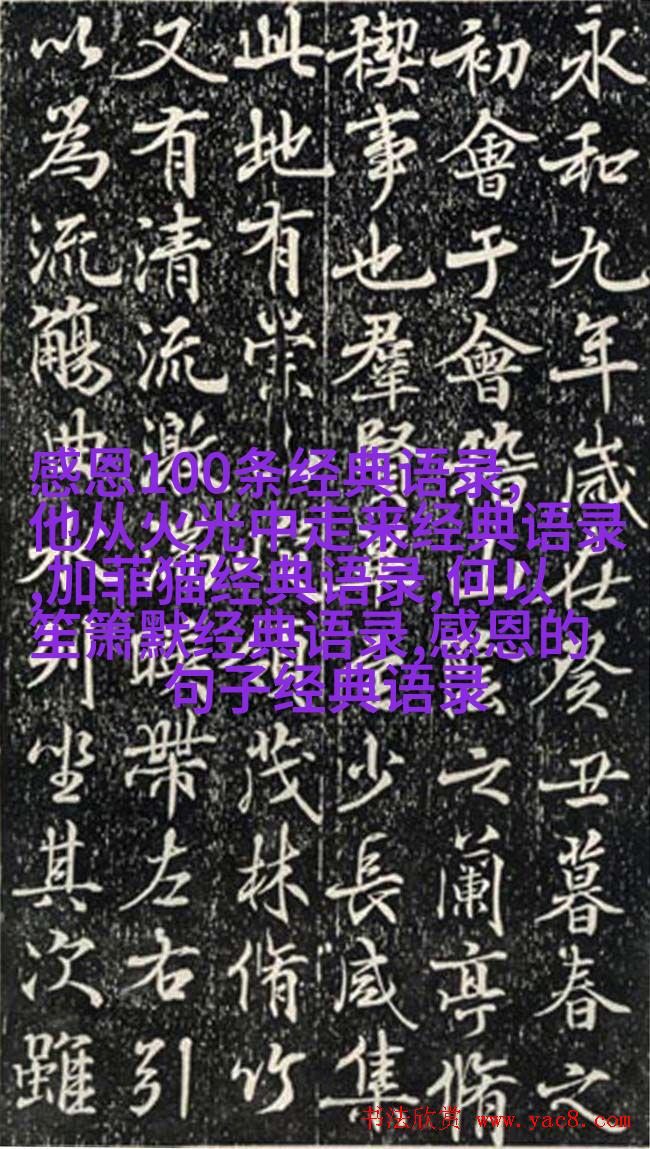 永和九年歲在癸丑暮春之
初會于會之蘭亭脩
稧事也羣賢少長咸集
此地有崇茂林脩竹
又有清流激帶左右引
以為流觴曲列坐其次雖
感恩100条经典语录,
他从火光中走来经典语录
,加菲猫经典语录,何以
笙箫默经典语录,感恩的
句子经典语录
书法欣赏 www.yac8.com